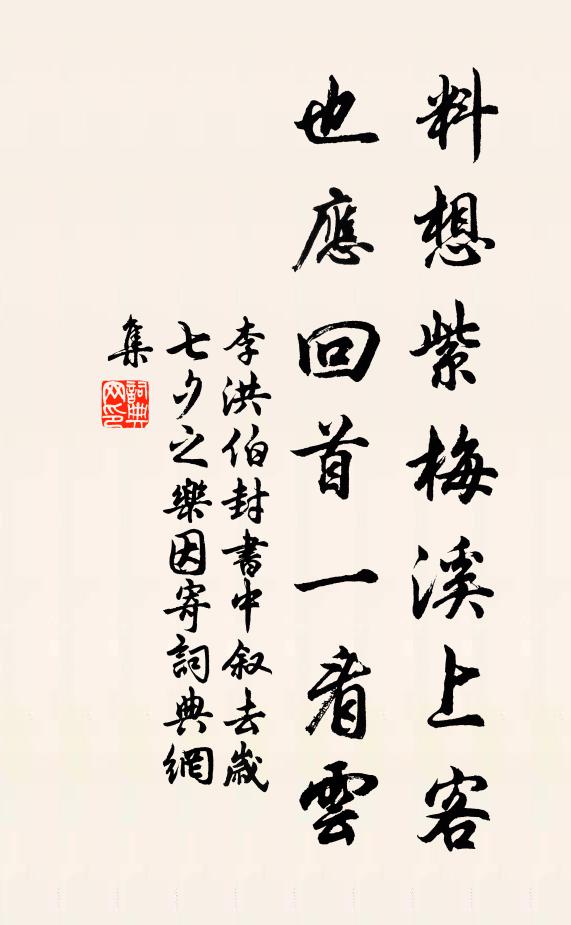 料想紫梅溪上客
也應回首一看雲
李洪伯封書中叙去歲
七夕之樂因寄詞典網
集
詞典網印